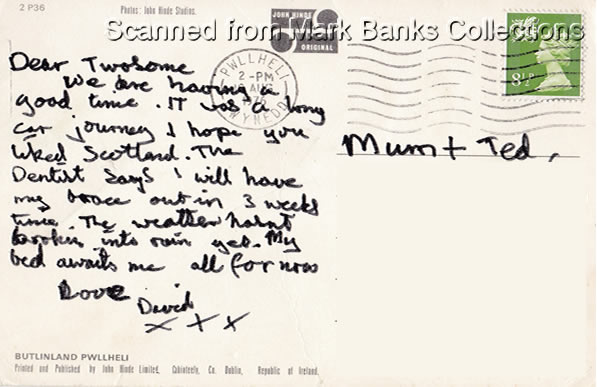 2 P36
Photos: John Hinde Studios.
Scanned from Mark Banks Collections
JOHN HINDE
ORIGINAL
PWLLHELI
2-PM
AUG
GWYNEDD
8½P
Dear Twosome
We are having a
good time. IT was a long
car journey I hope you
liked Scotland. The
Dentist says I will have
my brace out in 3 weeks
time. The weather hasnt
broken into rain yet. My
bed awaits me all for now
Love
David
x x x
Mum + Ted,
BUTLINLAND PWLLHELI
Printed and Published by John Hinde Limited, Cabinteely, Co. Dublin, Republic of Ireland.